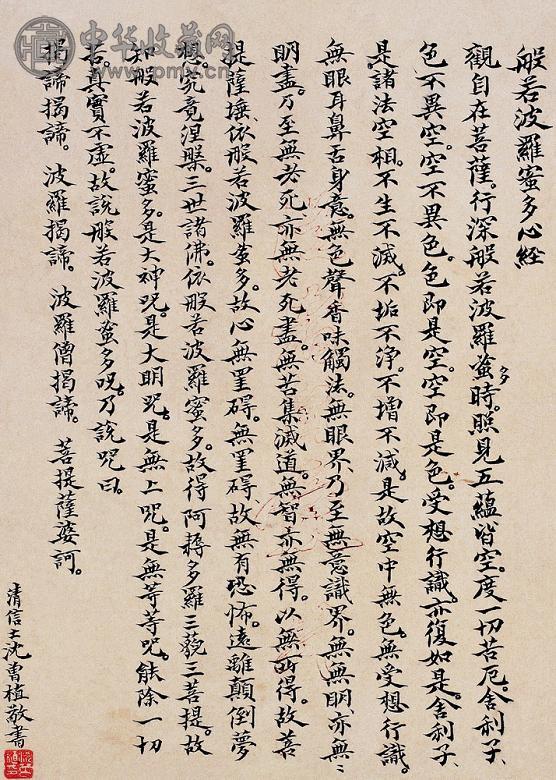 般若波羅蜜多心經
觀自在菩薩。行深般若波羅蜜多時。照見五蘊皆空。度一切苦厄。舍利子。
色不異空。空不異色。色即是空。空即是色。受想行識。亦復如是。舍利子。
是諸法空相。不生不滅。不垢不淨。不增不減。是故空中無色。無受想行識。
無眼耳鼻舌身意。無色聲香味觸法。無眼界。乃至無意識界。無無明。亦無無
明盡。乃至無老死。亦無老死盡。無苦集滅道。無智亦無得。以無所得。故菩
提薩埵。依般若波羅蜜多。故心無罣碍。無罣碍故。無有恐怖。遠離顛倒夢
想。究竟涅槃。三世諸佛。依般若波羅蜜多。故得阿耨多羅三藐三菩提。故
知般若波羅蜜多。是大神咒。是大明咒。是無上咒。是無等等咒。能除一切
苦。真實不虛。故說般若波羅蜜多咒。乃說咒曰。
揭諦揭諦。波羅揭諦。波羅僧揭諦。菩提薩婆訶。
清信士沈曾植敬書
中华收藏网
www.pmv.cn